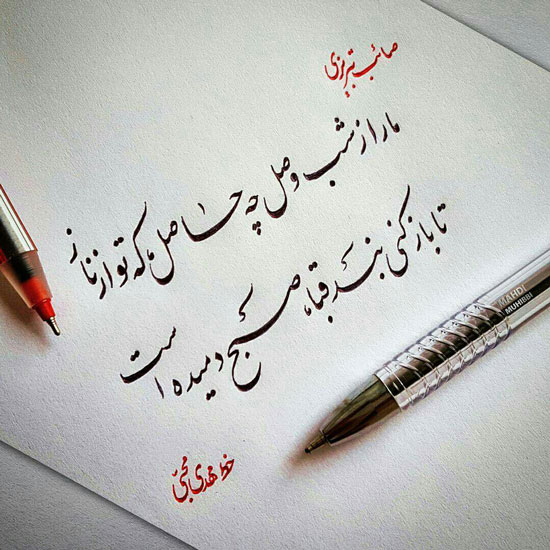 صائب تبریزی
ما را از شب وصل چه حاصل که تو از ناز
تا باز کنی بند قبا، صبح دمیده است
خط مهدی محبی
MAHDI
MUHIBBI